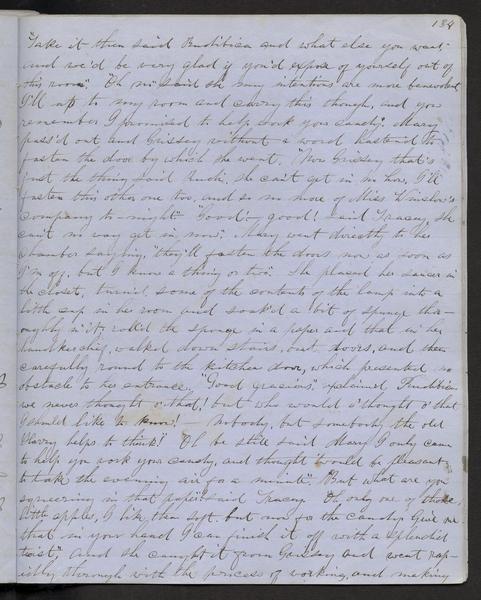 184
"Take it then said Rudibina and what else you want
and we'd be very glad if you'd expose of yourself out of
this room". "Oh no" said she "my intentions are more benevolent
I'll up to my room and carry this though, and you
remember I promised to help work your candy. Mary
pass'd out and Grissey without a word hastened to
fasten the door by which she went. "Now Grissey that's
just the thing said Rudi, she can't get in in how, I'll
fasten this other one too, and so no more of Miss Winslow's
company to-night" "Good! good! said Tracey, she
can't no way get in now". Mary went directly to her
chamber saying, "they'll fasten the doors now as soon as
I'm off, but I know a thing or two". She placed her saucer in
the closet, turned some of the contents of the lamp into a
little cup in her room and soak'd a bit of sponge tho-
roughly in it, rolled the sponge in a paper and that in her
handkerchief, walked down stairs, out doors, and then
carefully round to the kitchen door, which presented no
obstacle to her entrance. "Good gracious" exclaimed
we never thought o' that! but who would o' thought o' that
I should like to know! — Nobody, but somebody the old
Harry helps to think!" Oh be still said Mary I only came
to help you work your candy, and thought 'twould be pleasant
to take the evening air for a minute". "But what are you
squeezing in that paper" said Tracey. Oh only one of those
little apples, I like them soft. but now for the candy. Give me
that in your hand I can finish it off with a splendid
twist". And she caught it from Grissey and went rap-
idly through with the process of working, and making